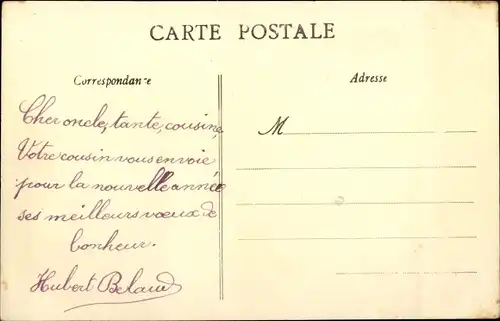 CARTE POSTALE
Correspondance
Adresse
Cher oncle, tante, cousine,
Votre cousin vous envoie
pour la nouvelle année
ses meilleurs vœux de
bonheur.
Hubert Belaud
M